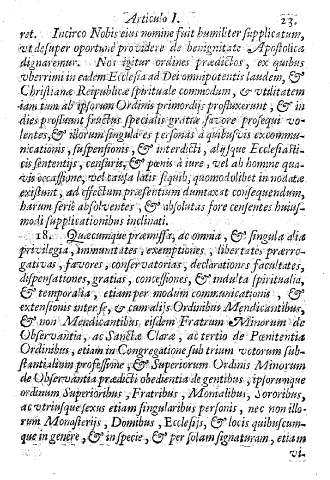 Articulo I. 23.
ret. Incirco Nobis eius nomine fuit humiliter supplicatum,
vt desuper oportunè providere de benignitate Apostolica
dignaremur. Nos igitur ordines prædictos, ex quibus
vberrimi in eadem Ecclesia ad Dei omnipotentis laudem, &
Christianæ Reipublicæ spirituale commodum, & vtilitatem
iam tum ab ipsorum Ordinis primordijs profluxerunt, & in
dies profluunt fructus specialis gratiæ favore prosequi vo-
lentes, & illorum singulares personas à quibusvis excommu-
nicationis, suspensionis, & interdicti, alijsque Ecclesiasti-
cis sententijs, censuris, & pœnis à iure, vel ab homine qua-
vis occassione, vel causa latis siquib, quomodolibet in nodatæ
existunt, ad effectum præsentium dumtaxat consequendum,
harum serie absolventes, & absolutas fore censentes huius-
modi supplicationibus inclinati.
18. Quæcumque præmissa, ac omnia, & singula alia
privilegia, immunitates, exemptiones, libertates prærro-
gativas, favores, conservatorias, declarationes facultates,
dispensationes, gratias, concessiones, & indulta spiritualia,
& temporalia, etiam per modum communicationis, &
extensionis inter se, & cum alijs Ordinibus Mendicantibus,
& non Mendicantibus eisdem Fratrum Minorum de
Observantia, ac Sanctæ Claræ, ac tertio de Pœnitentia
Ordinibus, etiam in Congregatione sub trium votorum sub-
stantialium professione, & Superiorum Ordinis Minorum
de Observantia prædicti obedientia degentibus, ipsorumque
ordinum Superioribus, Fratribus, Monialibus, Sororibus,
ac vtriusque sexus etiam singularibus personis, nec non illo-
rum Monasterijs, Domibus, Ecclesijs, & locis quibuscum-
que in genere, & in specie, & per solam signaturam, etiam
vi-